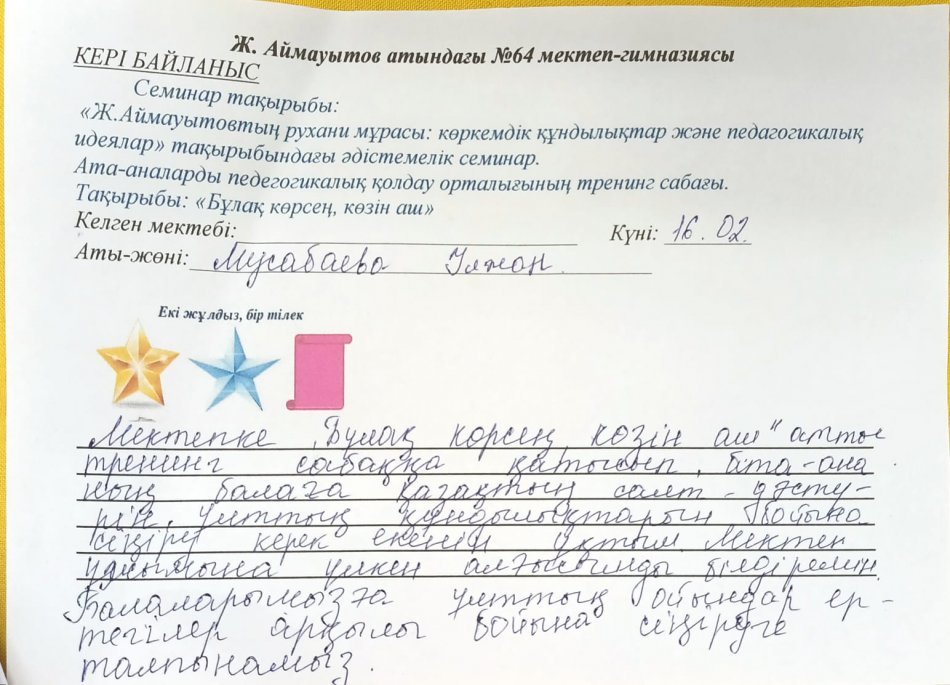 Ж. Аймауытов атындағы №64 мектеп-гимназиясы
КЕРІ БАЙЛАНЫС
Семинар тақырыбы:
«Ж.Аймауытовтың рухани мұрасы: көркемдік құндылықтар және педагогикалық
идеялар» тақырыбындағы әдістемелік семинар.
Ата-аналарды педегогикалық қолдау орталығының тренинг сабағы.
Тақырыбы: «Бұлақ көрсең, көзін аш»
Келген мектебі: Күні: 16. 02.
Аты-жөні: Мусабаева Улжан
Екі жұлдыз, бір тілек
Мектепке „Бұлақ көрсең көзін аш" атты
тренинг сабаққа қатысып, ата-ана
ның балаға қазақтың салт-дәсту-
рін, ұлттық құндылықтарын бойына
сіңіру керек екенін ұқтым. Мектеп
ұжымына үлкен алғысымды білдіремін.
Балаларымызға ұлттық ойындар ер-
тегілер арқылы бойына сіңіруге
талпынамыз.